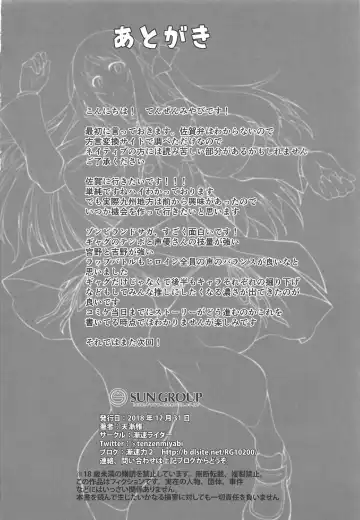 あとがき
こんにちは！　てんぜんみやびです！
最初に言っておきます。佐賀弁はわからないので
方言変換サイトで調べただけなので
ネイティブの方には読み苦しい部分があるかもしれません
ご了承ください
佐賀に行きたいです！！！
単純ですねハイわかっております
でも実際九州地方は前から興味があったので
いつか機会を作って行きたいと思います
ゾンビランドサガ、すごく面白いです！
ギャグのテンポと声優さんの技量が強い
宮野と吉野が強い
ラップバトルもヒロイン全員の声のバランスが良いなと
思いました
ギャグだけじゃなくて後半もキャラそれぞれの掘り下げ
などもしてみんな推しにしたくなる濃さが出てきたのが
良いです
コミケ当日までにストーリーがどう進むのかこれを
書いてる時点ではわかりませんが楽しみです
それではまた次回！
SUN GROUP
発行日：2018年12月31日
著者：天漸雅
サークル：漸速ライター
Twitter：tenzenmiyabi
ブログ：漸速力2　http://b.dlsite.net/RG10200
連絡、問い合わせは上記ブログからどうぞ。
※18歳未満の購読を禁止しています。無断転載、複製禁止。
この作品はフィクションです。実在の人物、団体、事件
などにはいっさい関係ありません。
本書を読んで生じたいかなる損害に対しても一切責任を負いません。